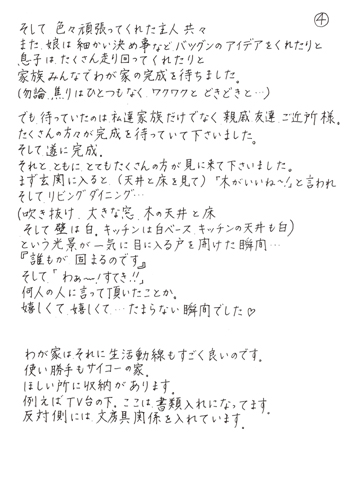 ④
そして 色々頑張ってくれた主人 共々
また、娘は 細かい決め事など バッグンのアイデアをくれたりと
息子は、たくさん走り回ってくれたりと
家族みんなでわが家の完成を待ちました。
(勿論、焦りはひとつもなく、ワクワクと どきどきと…)
でも、待っていたのは、私達家族だけでなく、親戚、友達、ご近所様。
たくさんの方々が完成を待っていて下さいました。
そして遂に完成。
それと、ともに、とてもたくさんの方が見に来て下さいました。
まず玄関に入ると、(天井と床を見て)「木がいいね〜!」と言われ
そして、リビングダイニング…
(吹き抜け、大きな窓、木の天井と床
そして壁は白。キッチンは白ベース、キッチンの天井も白)
という光景が一気に目に入る戸を開けた瞬間…
『誰もが 回まるのです』
そして、「わぁ〜!すてき!!」
何人の人に言って頂いたことか。
嬉しくて 嬉しくて…たまらない瞬間でした♡
わが家は、それに生活動線もすごく良いのです。
使い勝手もサイコーの家。
ほしい所に収納があります。
例えばTV台の下。ここは、書類入れになってます。
反対側には、文房具関係を入れています。